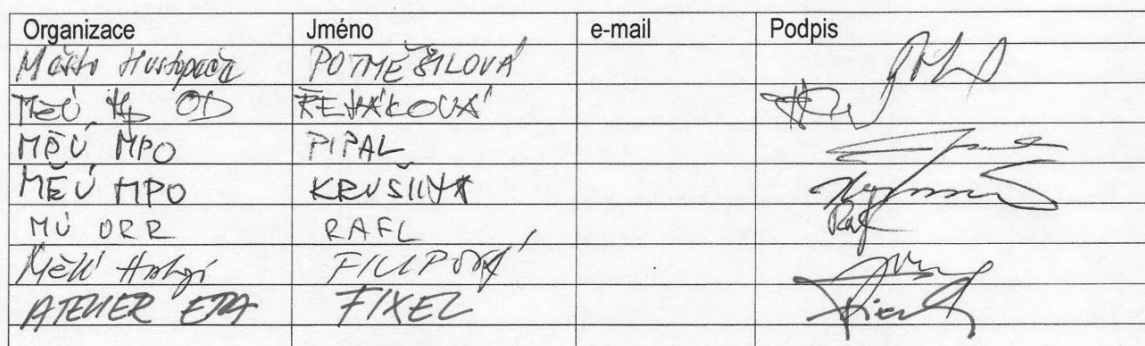 Organizace Jméno e-mail Podpis
Město Hustopeče POTMĚŠILOVÁ
MěÚ OD ŘEHÁKOVÁ
MěÚ MPO PIPAL
MĚÚ MPO KRUŠINA
MÚ ORR RAFL Rafl
MěÚ FILIPOVÁ
ATELIER ERA FIXEL Fixel